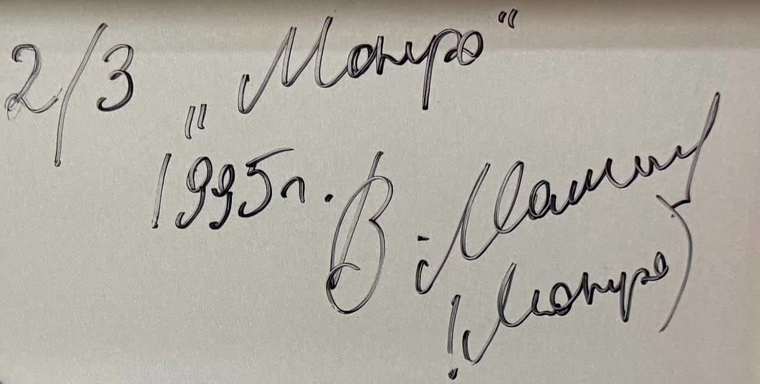 2/3 „Монро“
1995г. В.
(Монро)